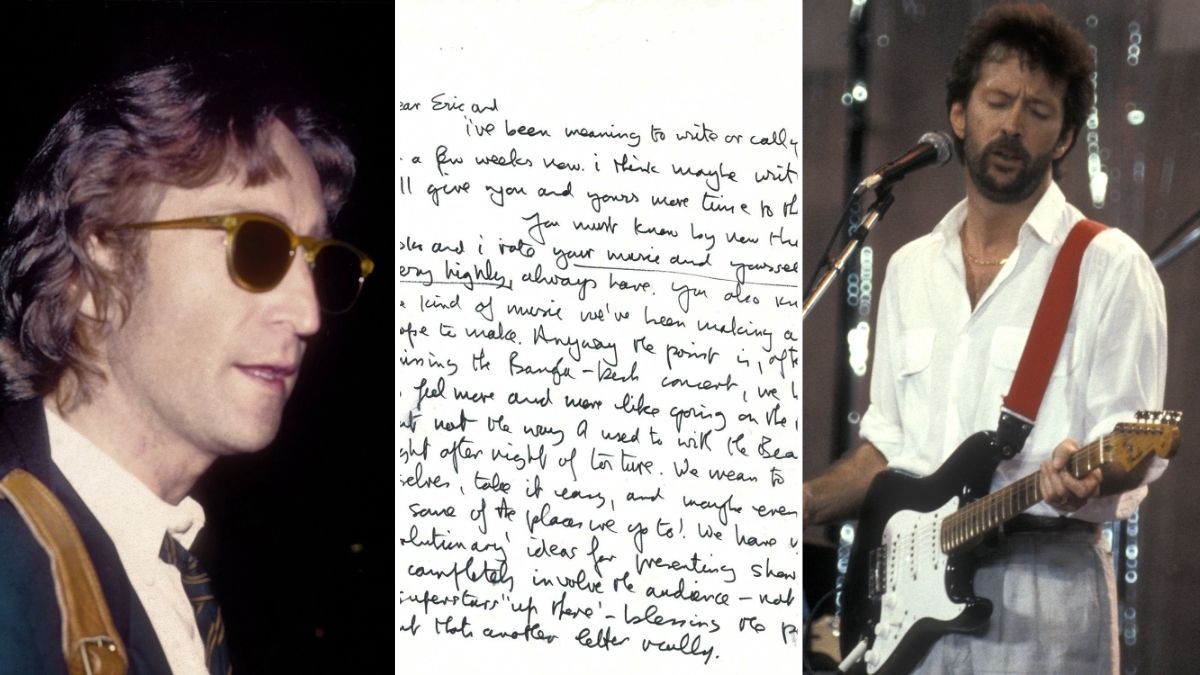 ear Eric and
i've been meaning to write or call y
a few weeks now. i think maybe writ
ll give you and yours more time to th
You must know by now tha
oko and i rate your music and yoursel
ery highly, always have. You also kn
kind of music we've been making a
ope to make. Anyway the point is, afte
issing the Bangla-Desh concert, we b
feel more and more like going on the
ut not the way I used to with the Bea
ght after night of torture. We mean to
selves, take it easy, and maybe even
some of the places we go to! We have
olutionary ideas for presenting show
completely involve the audience - not
superstars" up there' - blessing the p
ut thats another letter really.